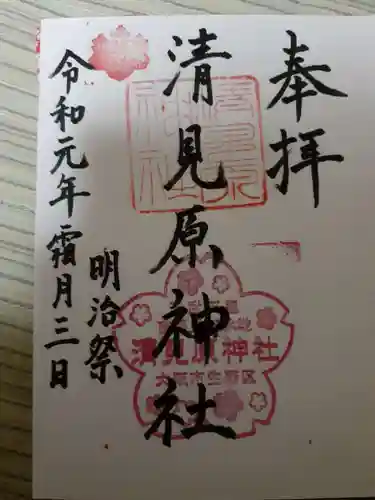 奉拝
清見原神社
明治祭
令和元年霜月三日
清見原神社
大阪市生野区